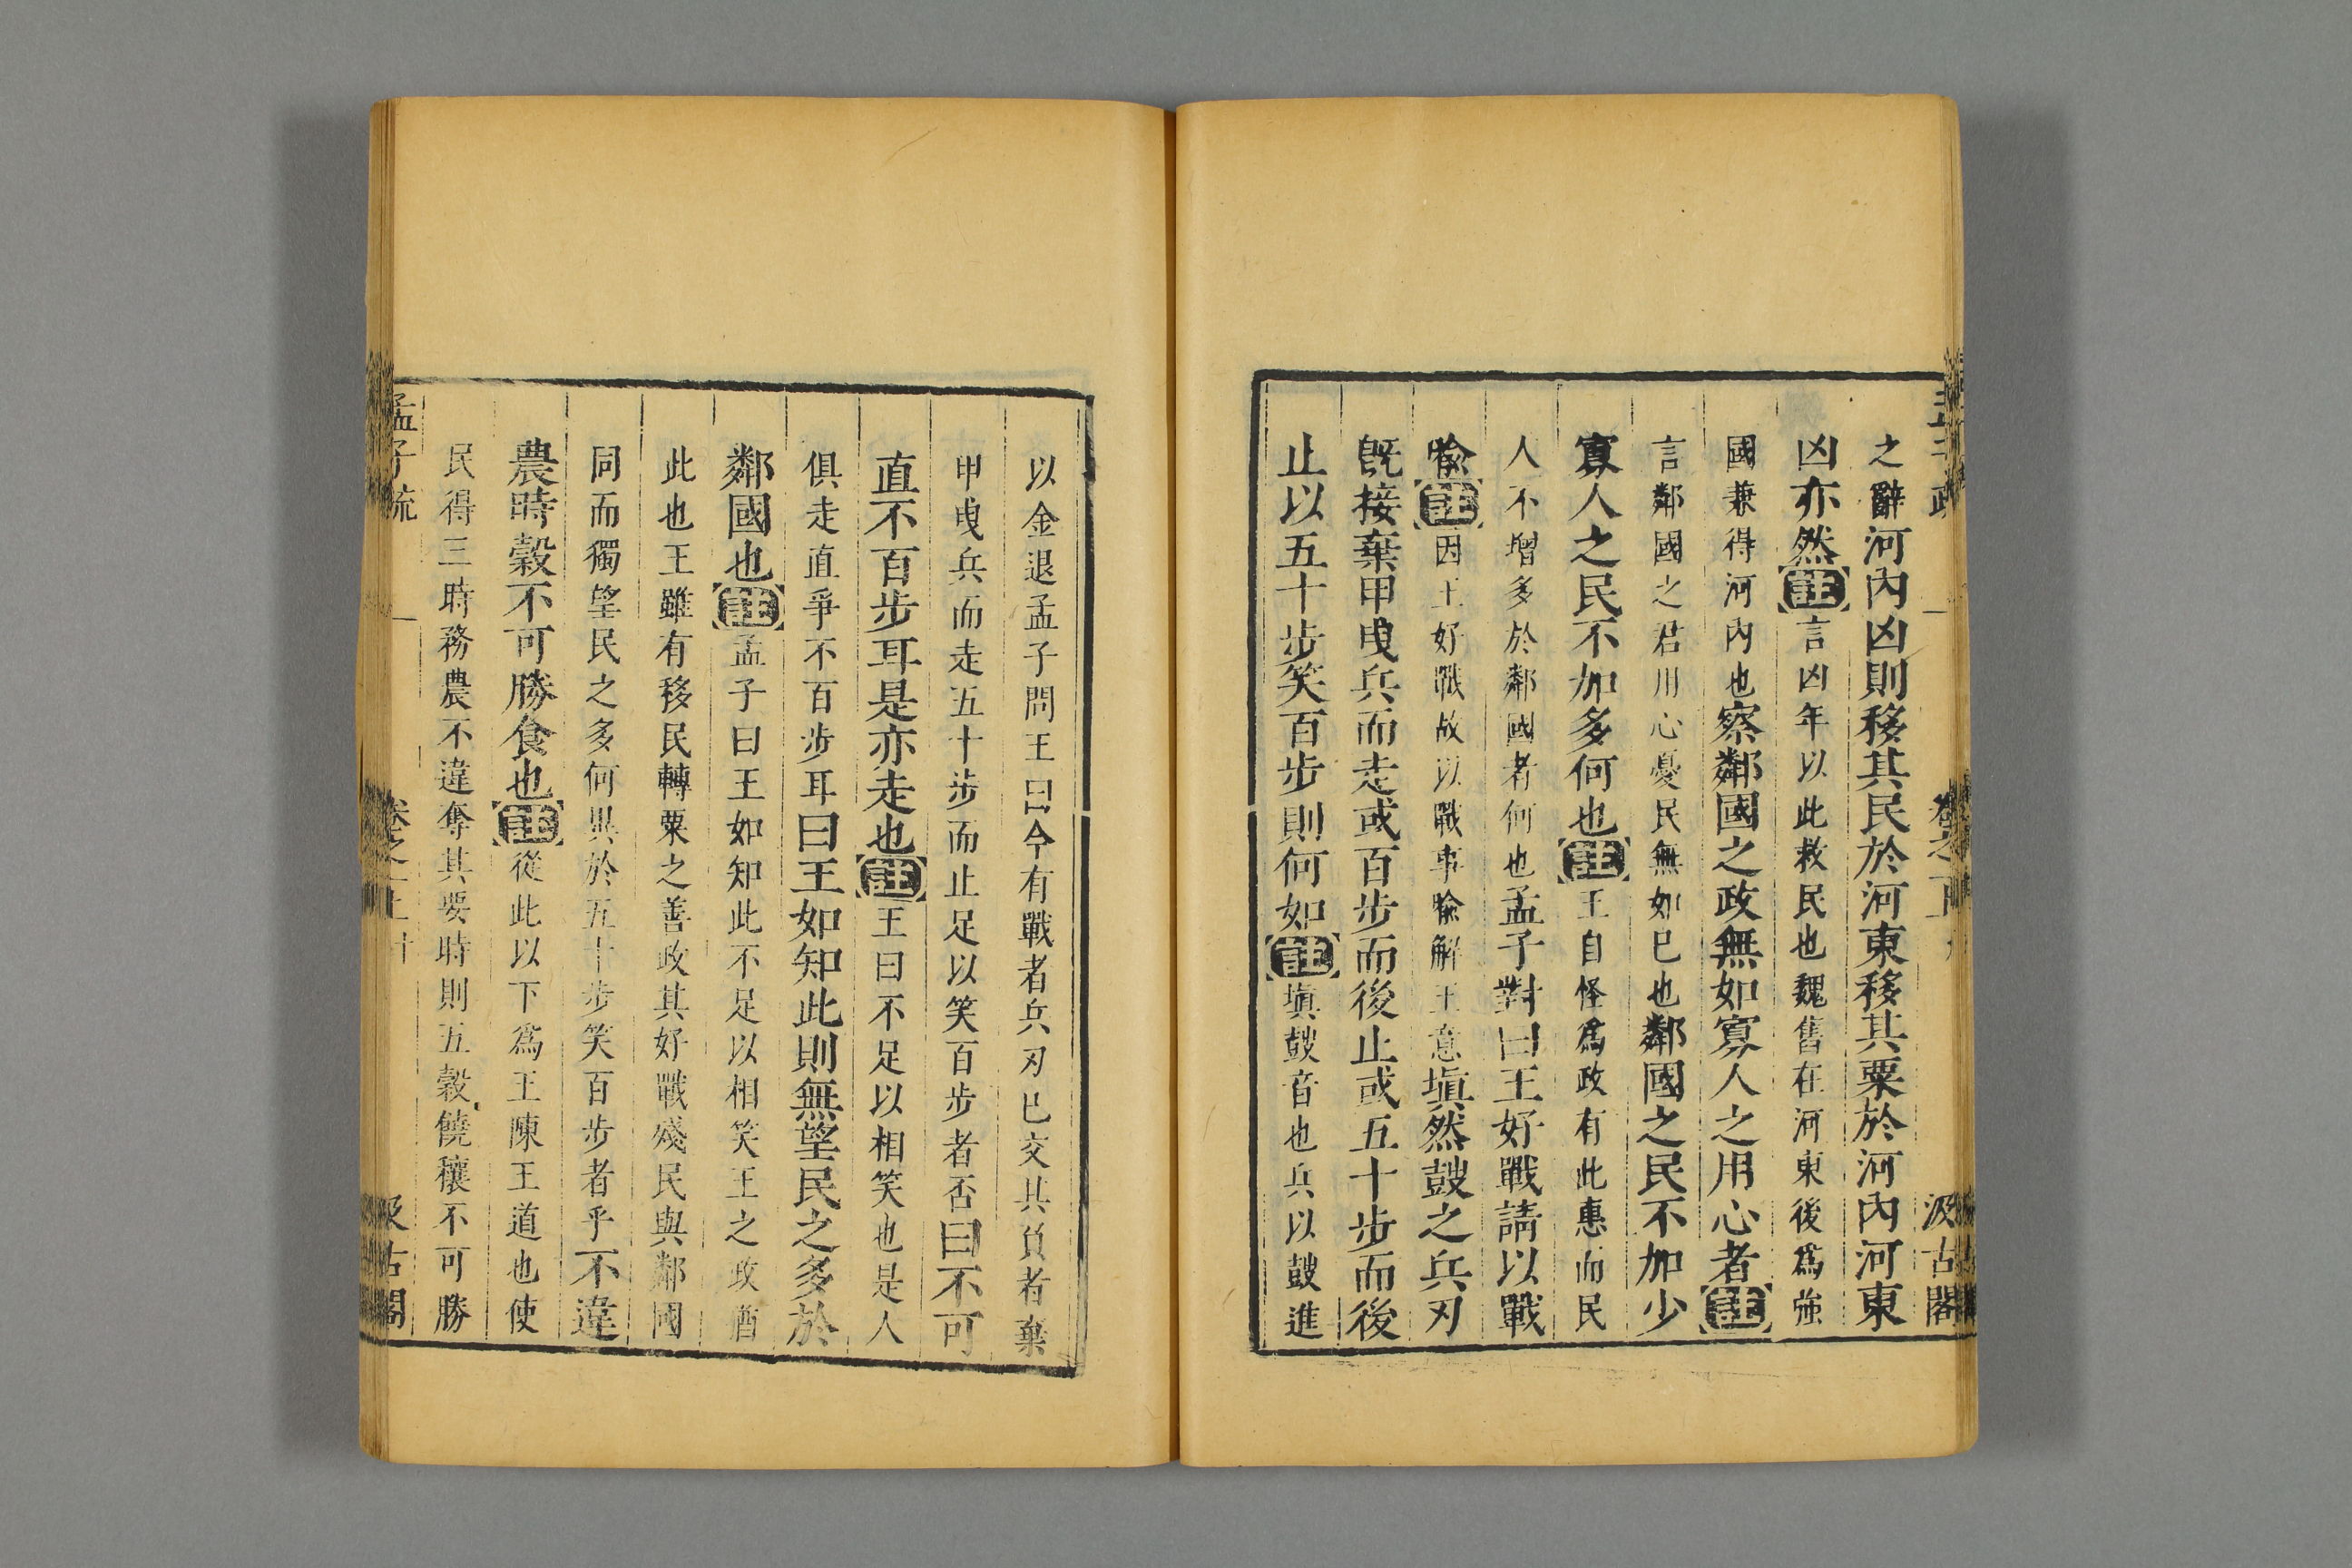 之辭河內凶則移其民於河東移其粟於河內河東
凶亦然註言凶年以此救民也魏舊在河東後爲強
國兼得河內也察鄰國之政無如寡人之用心者註
言鄰國之君用心憂民無如已也鄰國之民不加少
寡人之民不加多何也註王自怪爲政有此惠而民
人不增多於鄰國者何也孟子對曰王好戰請以戰
喻註因王好戰故以戰事喻解王意塡然鼓之兵刃
旣接棄甲曳兵而走或百步而後止或五十步而後
止以五十步笑百步則何如註塡鼓音也兵以鼓進
以金退孟子問王曰今有戰者兵刃已交其負者棄
甲曳兵而走五十步而止足以笑百步者否曰不可
直不百步耳是亦走也註王曰不足以相笑也是人
俱走直爭不百步耳曰王如知此則無望民之多於
鄰國也註孟子曰王如知此不足以相笑王之政猶
此也王雖有移民轉粟之善政其好戰殘民與鄰國
同而獨望民之多何異於五十步笑百步者乎不違
農時穀不可勝食也註從此以下爲王陳王道也使
民得三時務農不違奪其要時則五穀饒穰不可勝
孟子疏 卷之一上 十 汲古閣